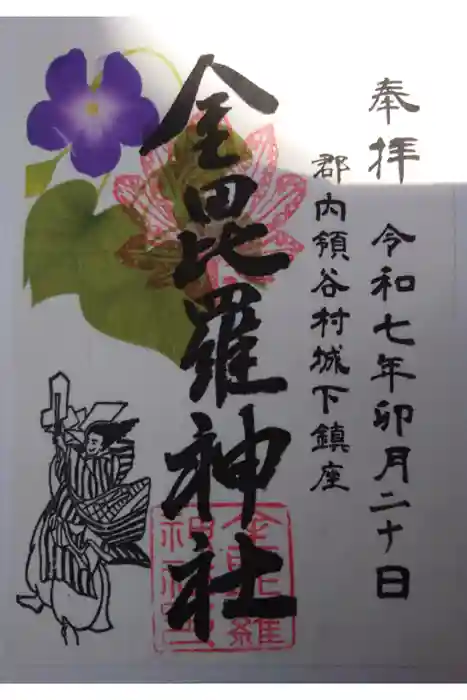 奉拝 令和七年卯月二十日
郡内領谷村城下鎮座
金毘羅神社
金毘羅
神社